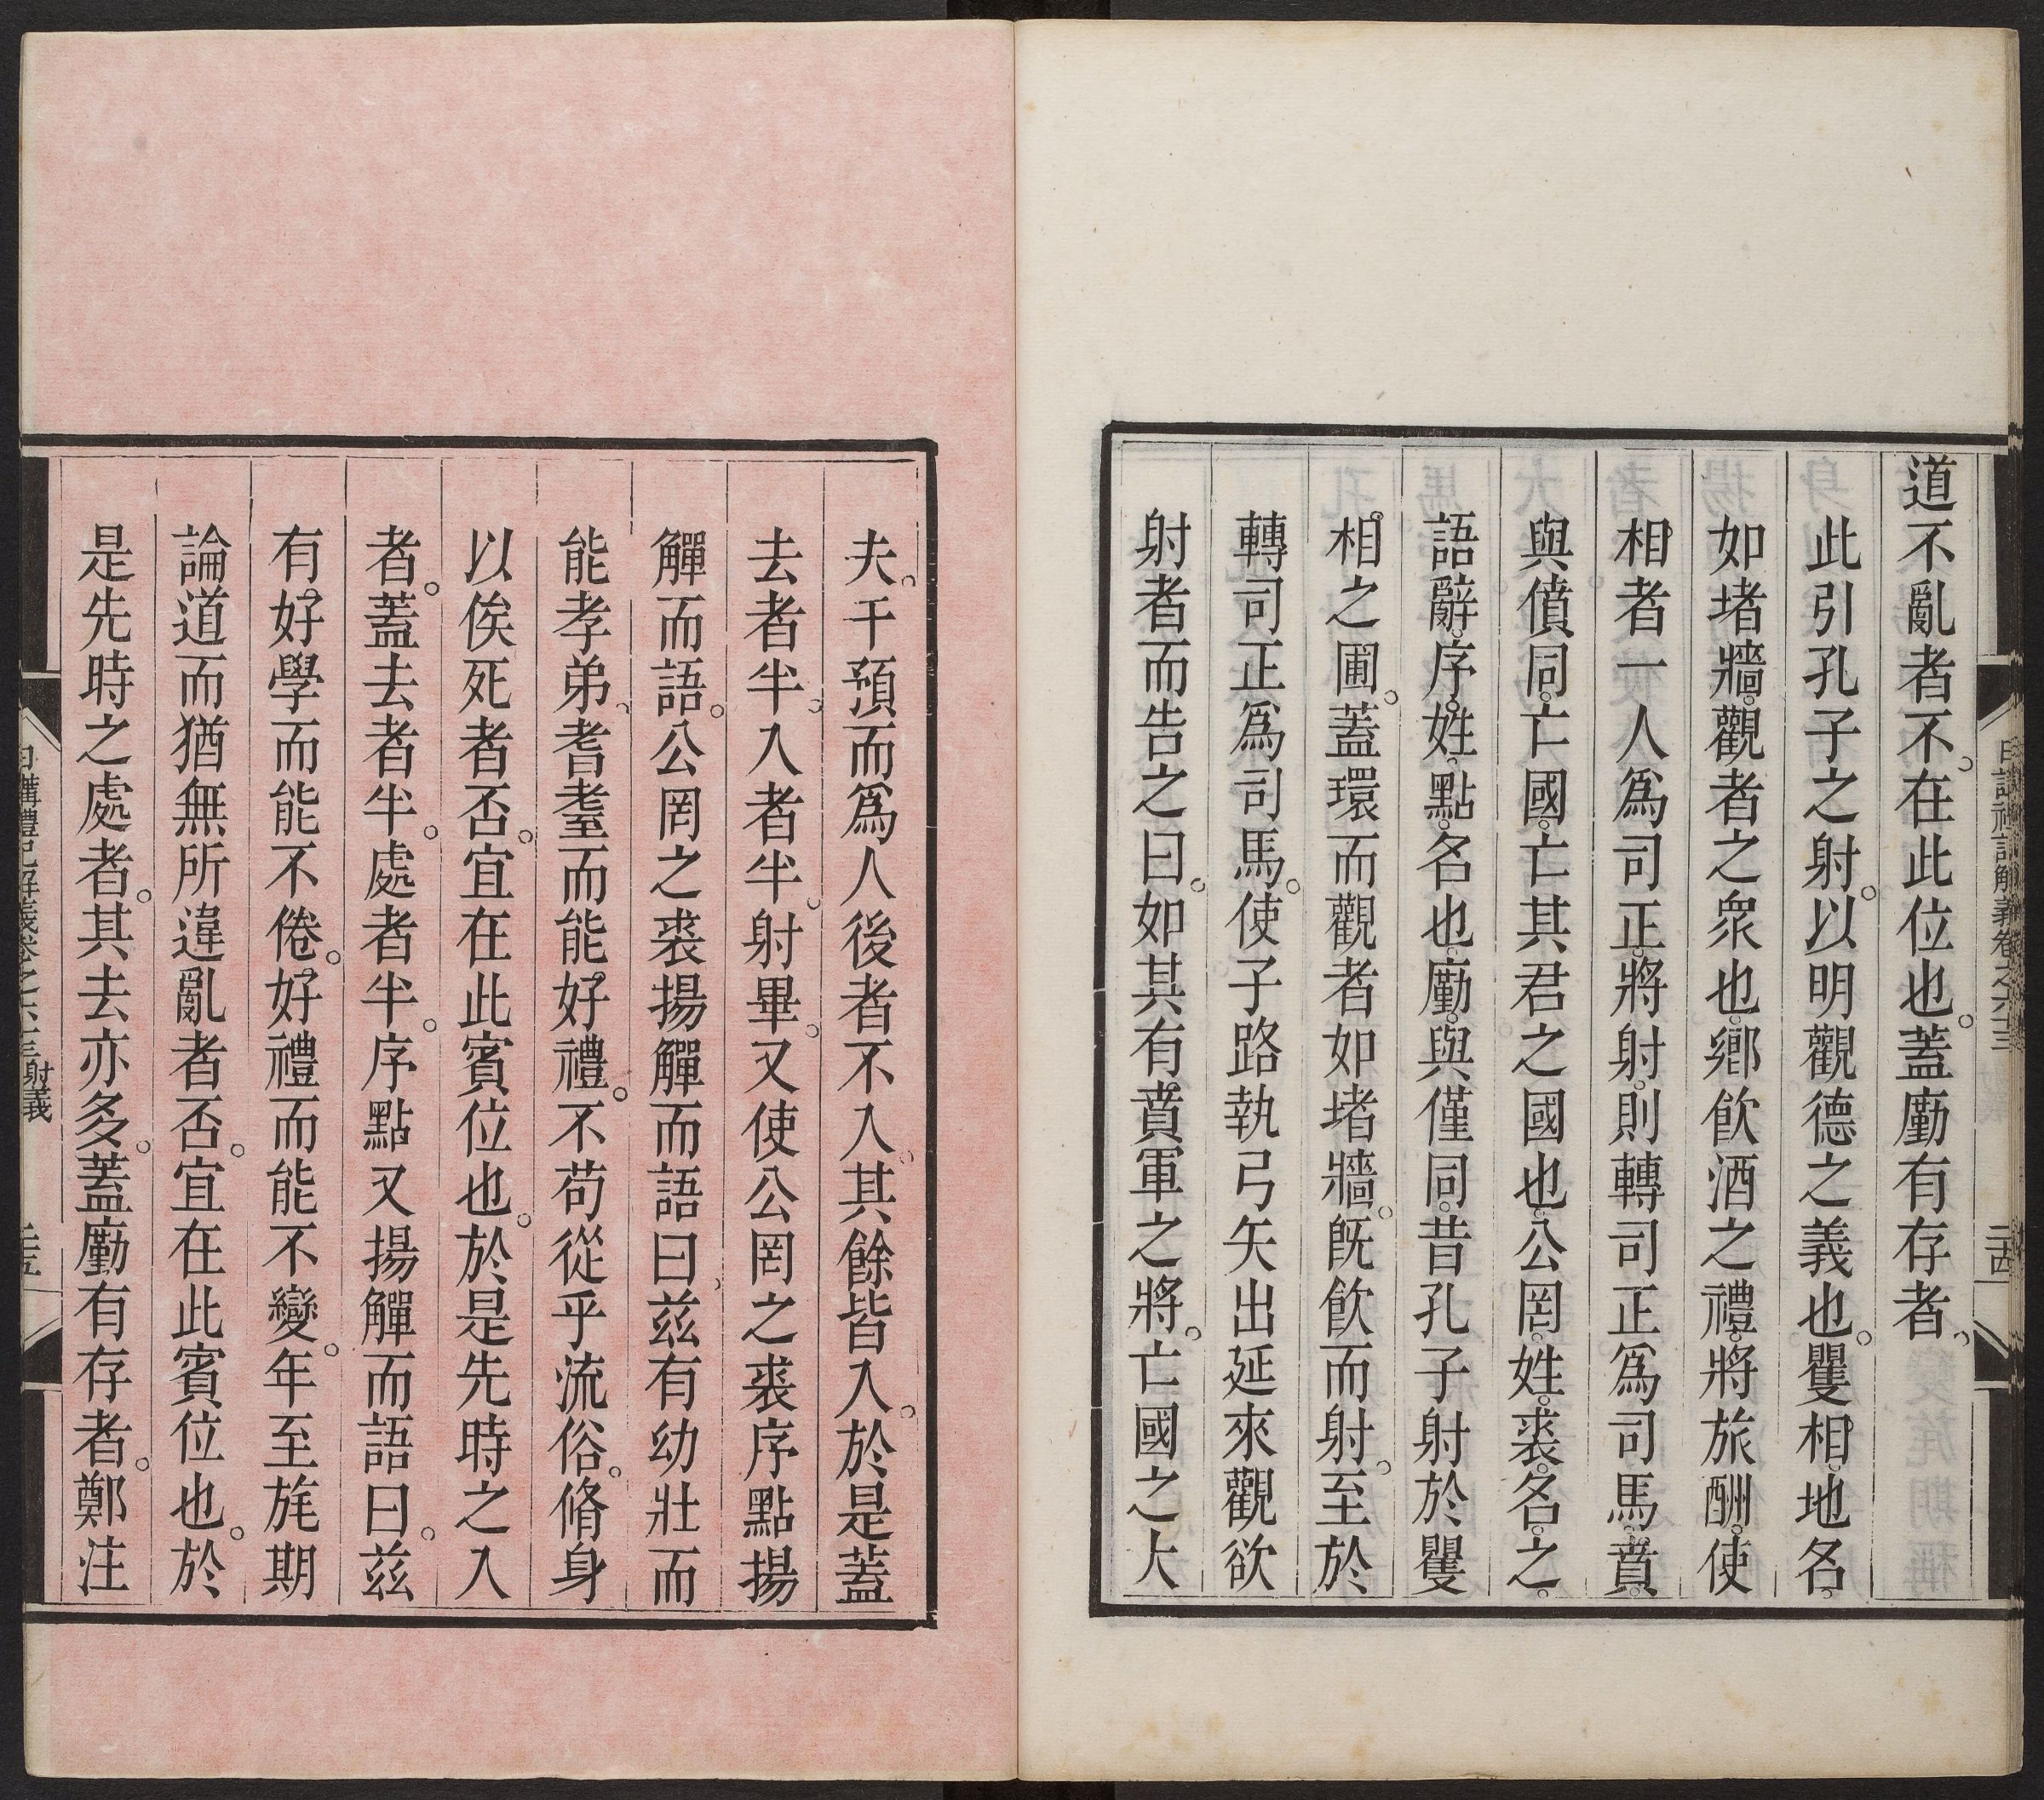 道不亂者不。在此位也。蓋勱有存者。
此引孔子之射。以明觀德之義也。矍相。地名。
如堵牆。觀者之衆也。鄉飲酒之禮。將旅酬。使
相者一人爲司正。將射。則轉司正爲司馬。賁。
與僨同。亡國。亡其君之國也。公罔。姓。裘。名。之。
語辭。序。姓。點。名也。勱。與僅同。昔孔子射於矍
相之圃。蓋環而觀者如堵牆。旣飲而射。至於
轉司正爲司馬。使子路執弓矢出延來觀欲
射者而告之曰。如其有賁軍之將。亡國之大
夫。干預而爲人後者不入。其餘皆入。於是蓋
去者半。入者半。射畢。又使公罔之裘序點揚
觶而語。公罔之裘揚觶而語曰。茲有幼壯而
能孝弟。耆耋而能好禮。不苟從乎流俗。脩身
以俟死者否。宜在此賓位也。於是先時之入
者。蓋去者半。處者半。序點又揚觶而語曰。茲
有好學而能不倦。好禮而能不變。年至旄期
論道而猶無所違亂者否。宜在此賓位也。於
是先時之處者。其去亦多。蓋勱有存者。鄭注
日講禮記解義卷之六十三 射義